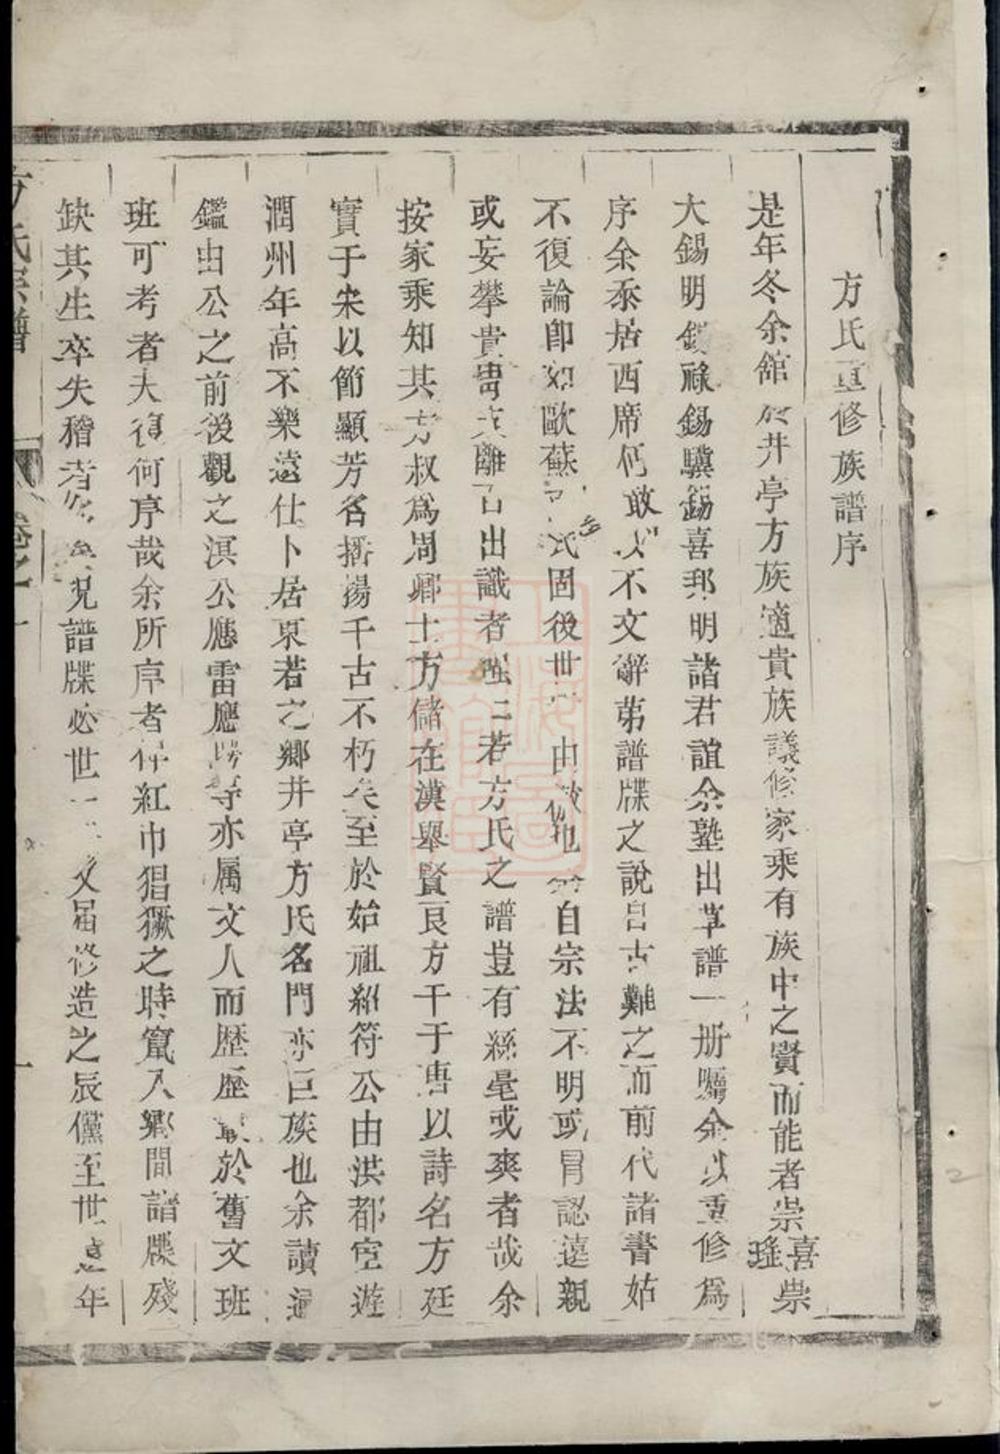 方氏重修族譜序
是年冬余館於井亭方族適貴族議修家乘有族中之賢而能者崇喜崇瑤
大錫明錢祿錫驥錫喜邦明諸君誼余塾出草譜一册囑余以重修爲
序余忝居西席何敢以不文辭第譜牒之說自古難之而前代諸書姑
不復論卽如歐蘇氏固後世由倣也自宗法不明或冒認遠親
或妄攀貴冑支離百出識者嗤之若方氏之譜豈有絲毫或爽者哉余
按家乘知其方叔爲周卿士方儲在漢舉賢良方干于唐以詩名方廷
實于宋以節顯芳名播揚千古不朽矣至於始祖紹符公由洪都宦遊
潤州年高不樂遠仕卜居東若之鄉井亭方氏名門亦巨族也余讀通
鑑由公之前後觀之溟公應雷應暘等亦属文人而歷歷載於舊文班
班可考者夫復何序哉余所序者伴紅巾猖獗之時竄入鄉間譜牒殘
缺其生卒失稽者多矣况譜牒必世一修造之辰儻至世遠年
方氏宗譜
卷之一